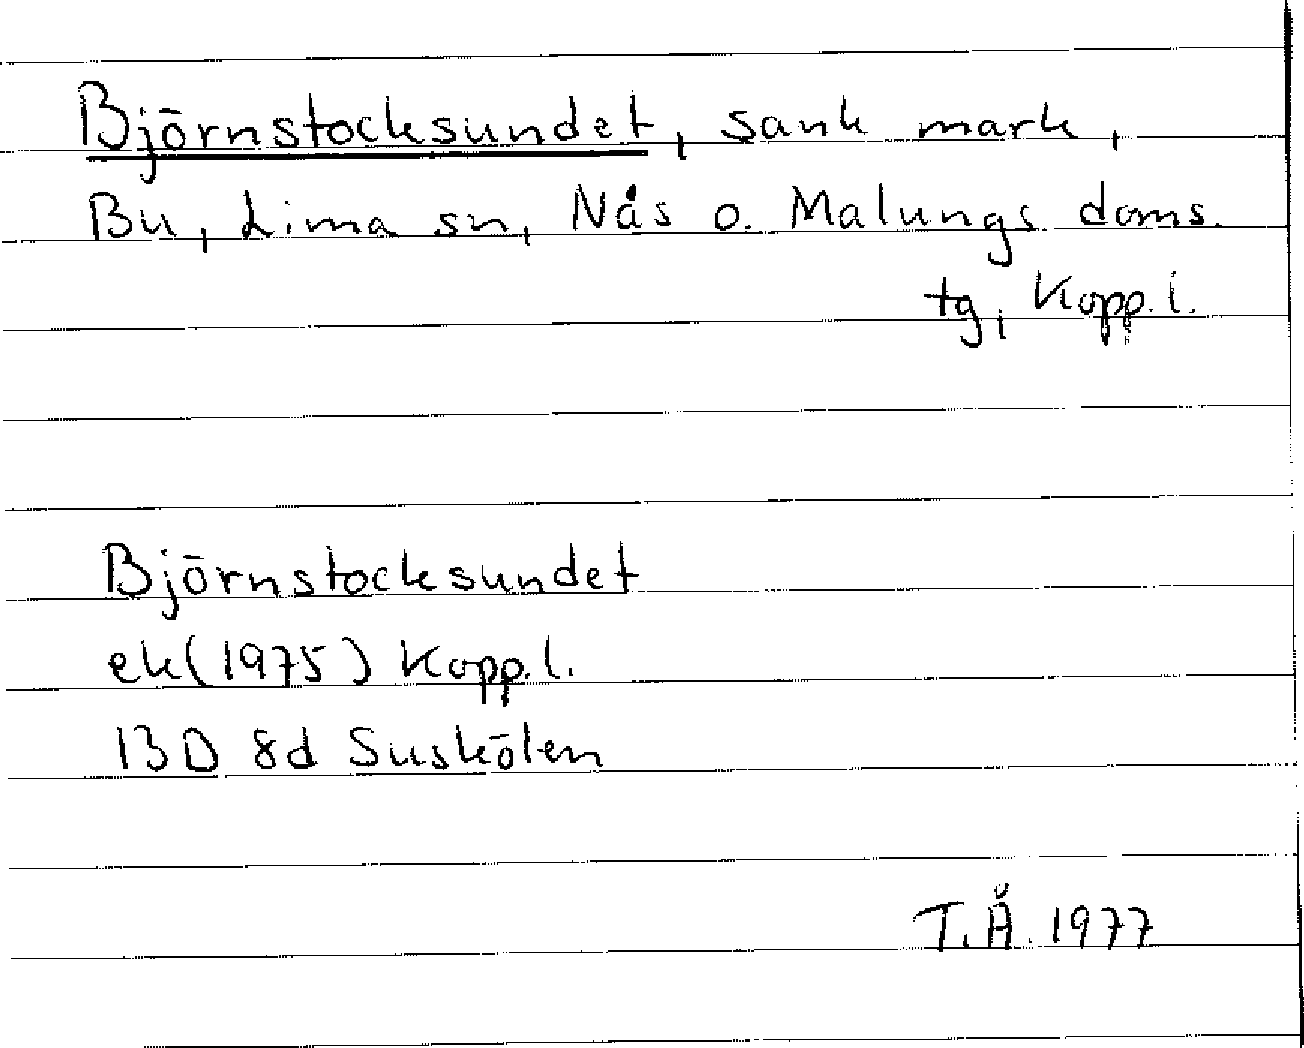 Björnstocksundet, sank mark,
Bu, Lima sn, Nås o. Malungs doms.
tg, Kopp. l.
Björnstocksundet
ek (1975) Kopp. l.
13D 8d Suskölen
T.Å. 1977